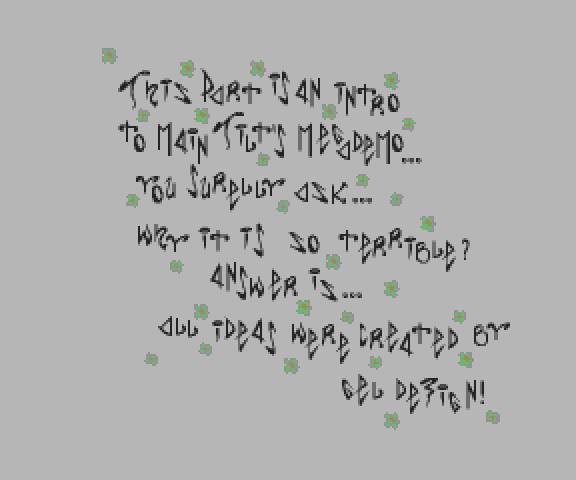 This Part is an intro
to main Tilt's megademo...
you surelly ask...
why it is so terrible?
answer is...
all ideas were created by
gel design!